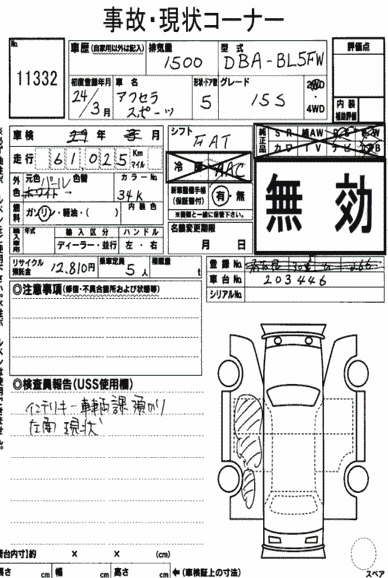 事故・現状コーナー
No.
11332
車歴 (自家用以外は記入)
排気量
1500
型式
DBA-BL5FW
評価点
初度登録年月
24年
3月
車名
アクセラ
スポーツ
形状・ドア数
5
グレード
15S
2WD
・
4WD
内装
補助評価
車検
年 月
シフト
FAT
純正品
SR
純AW
カワ
TV
ナビ
走行
61,025
Km
マイル
冷房
AAC
無効
外色
元色
色替
カラーNo.
パール
ホワイト→
34K
新車整備手帳
(保証書付)
有・無
※車検と一緒に保管して下さい。
燃料
ガソリン・軽油・( )
内装色
名義変更期限
月 日
輸入車用
年式
輸入区分
ハンドル
ディーラー・並行
左・右
リサイクル
預託金
12,810円
乗車定員
5人
積載量
t
登録No.
車台No.
203446
シリアルNo.
◎注意事項(修復・不具合箇所および状態等)
◎検査員報告(USS使用欄)
インテリキー車輌課預かり
左面現状
荷台内寸)約 × × (cm)
長さ cm
幅 cm
高さ cm
←(車検証上の寸法)
スペア